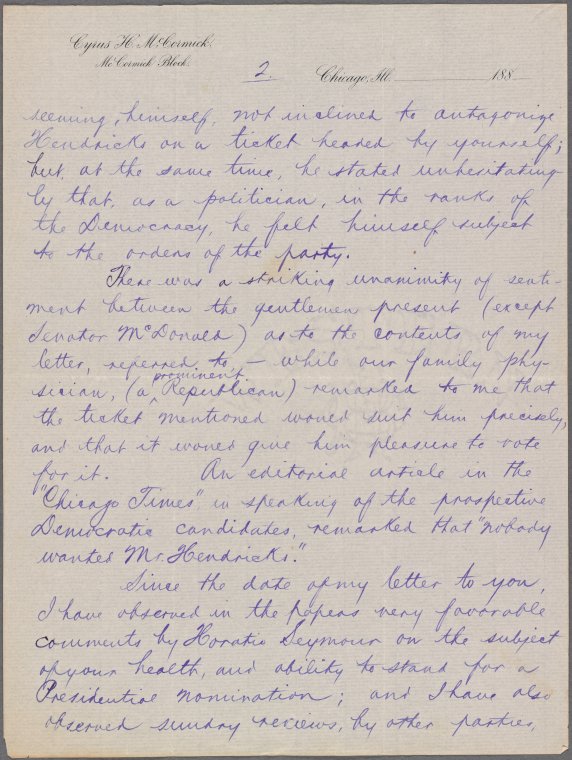 Cyrus H. McCormick.
McCormick Block.
2. Chicago, Ill. 188
seeming, himself, not inclined to antagonize
Hendricks on a ticket headed by yourself;
but, at the same time, he stated unhesitating
ly that, as a politician, in the ranks of
the Democracy, he felt himself subject
to the orders of the party.
There was a striking unanimity of senti-
ment between the gentlemen present (except
Senator McDonald) as to the contents of my
letter, referred to — while our family phy-
prominent
sician, (a Republican) remarked to me that
the ticket mentioned would suit him precisely,
and that it would give him pleasure to vote
for it. An editorial article in the
"Chicago Times", in speaking of the prospective
Democratic candidates, remarked that "nobody
wanted Mr. Hendricks."
Since the date of my letter to you,
I have observed in the papers very favorable
comments by Horatio Seymour on the subject
of your health, and ability to stand for a
Presidential nomination; and I have also
observed sundry reviews, by other parties,